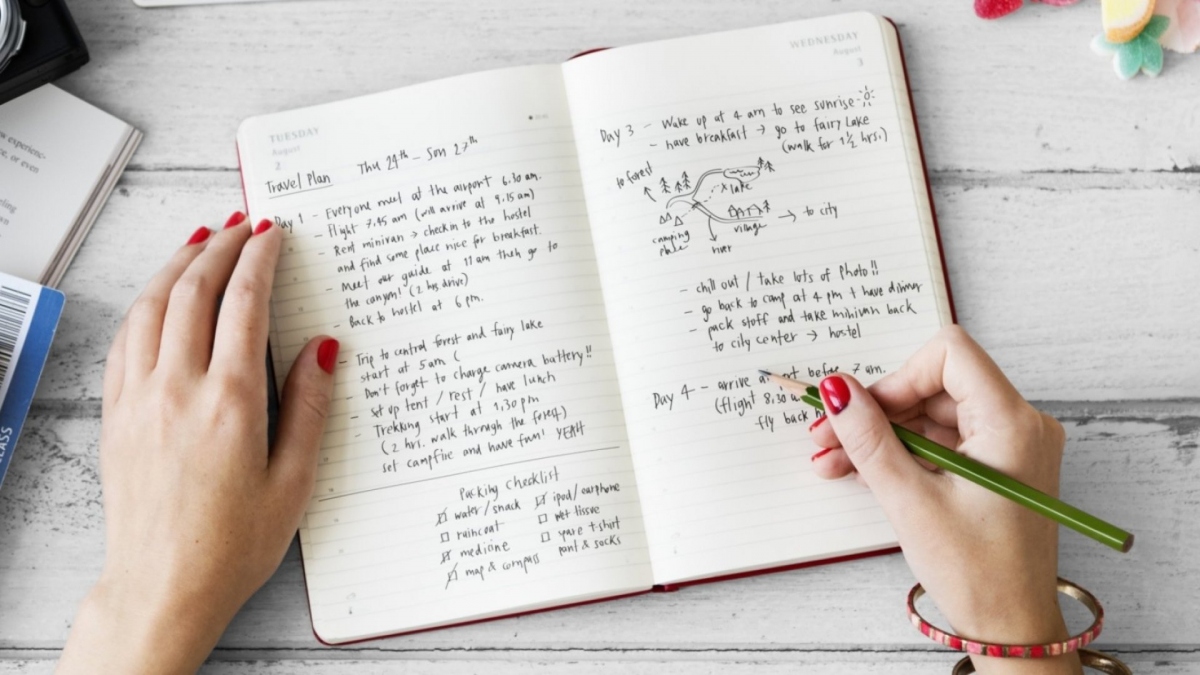 TUESDAY
August
2
Travel Plan
Thu 24th - Sun 27th
Day 1 - Everyone meet at the airport 6.30 am.
- Flight 7.45 am (will arrive at 9.15 am)
- Rent minivan → checkin to the hostel
and find some place nice for breakfast.
- Meet our guide at 11 am then go to
the canyon! (2 hrs drive)
- Back to hostel at 6 pm.
- Trip to central forest and fairy lake
start at 5 am (
- Don't forget to charge camera battery!!
- Set up tent / rest / have lunch
- Trekking start at 1,30 pm
(2 hrs. walk through the forest)
set campfire and have fun! YEAH
Packing Checklist
water / snack
raincoat
medicine
map & compass
ipod / earphone
wet tissue
spare t-shirt
pant & socks
WEDNESDAY
August
3
Day 3 - Wake up at 4 am to see sunrise
- have breakfast → go to fairy Lake
(walk for 1 1/2 hrs.)
to forest
x lake
→ to city
village
camping
river
- chill out / take lots of photo!!
- go back to camp at 4 pm + have dinner
- pack stuff and take minivan back
to city center → hostel
Day 4 - arrive before 7 am.
(flight 8,30
fly back
experienc-
or even
CLASS